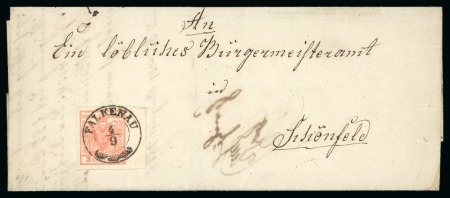 An
Ein löbliches Bürgermeisteramt
in
Schönfeld
FALKENAU
4/9